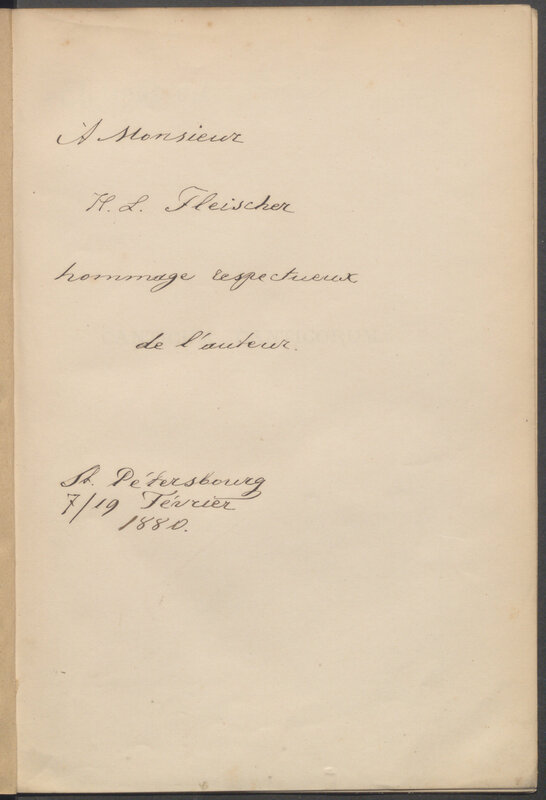 À Monsieur
H. L. Fleischer
hommage respectueux
de l'auteur.
St. Pétersbourg
7/19 Février
1880.